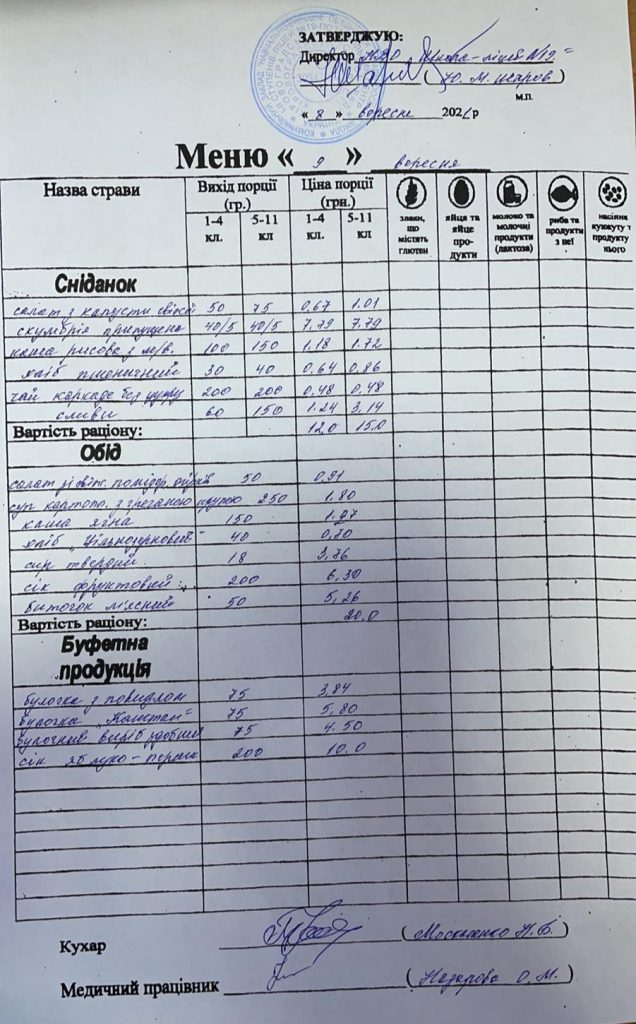 ЗАТВЕРДЖУЮ:
Директор НВО "Школа-ліцей №19"
( Ю. М. Шаров )
м.п.
« 8 » вересня 2021р
Меню « 9 » вересня
Назва страви Вихід порції (гр.) Ціна порції (грн.) злаки, що містять глютен яйця та яйце продукти молоко та молочні продукти (лактоза) риба та продукти з неї насіння кунжуту т продукту нього
1-4 кл. 5-11 кл 1-4 кл. 5-11 кл
Сніданок
салат з капусти свіжої 50 75 0,67 1.01
скумбрія припущена 40/5 40/5 7.79 7.79
каша рисова з м/в. 100 150 1,18 1.72
хліб пшеничний 30 40 0,64 0,86
чай каркаде без цукру 200 200 0,48 0,48
сливи 60 150 1.24 3,14
Вартість раціону: 12,0 15,0
Обід
салат зі світ. помідор. 50 0,91
суп картопл. з гречаною крупою 250 1,80
каша ячна 150 1.27
хліб "Цільнозерновий" 40 0,70
сир твердий 18 3,76
сік фруктовий 200 6,30
биточок м'ясний 50 5,26
Вартість раціону: 20,0
Буфетна продукція
булочка з повидлом 75 3,84
булочка "Каштан" 75 5,80
булочний виріб здобний 75 4.50
сік яблуко-персик 200 10.0
Кухар ( Москаленко Н. В. )
Медичний працівник ( Назарова О. М. )